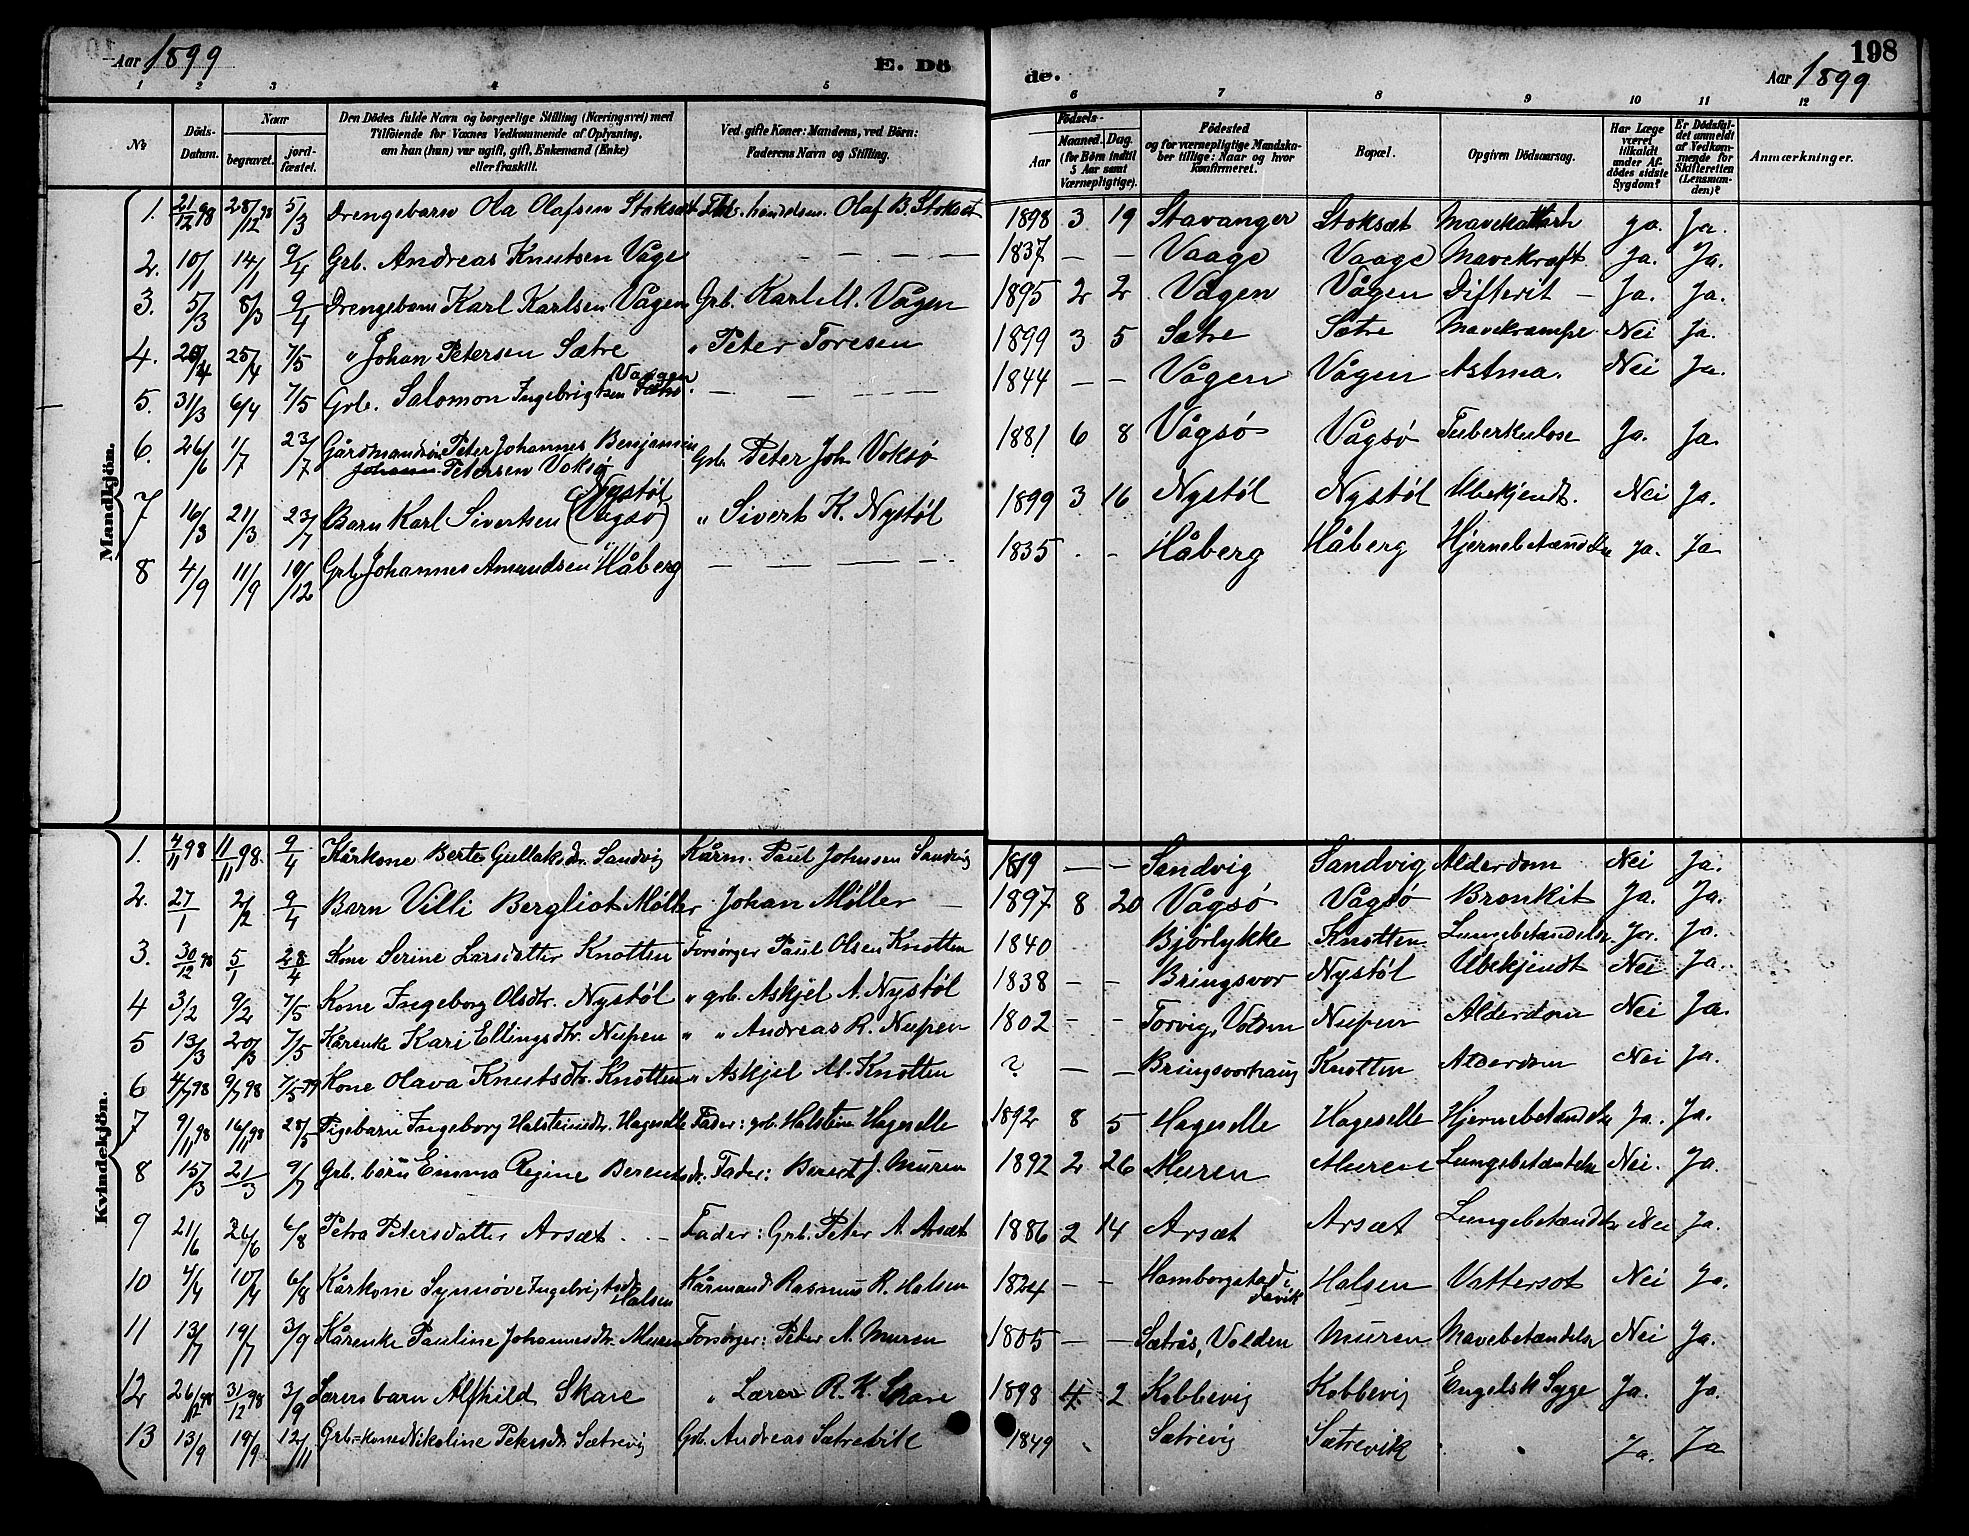 Aar 1899
E. Dö
de.
198
Aar 1899
1 2 3 4 5 6 7 8 9 10 11 12
№
Döds-Datum.
Naar
begravet.
jord-fæstet.
Den Dödes fulde Navn og borgerlige Stilling (Næringsvei) med
Tilföiende for Voxnes Vedkommende af Oplysning,
om han (hun) var ugift, gift, Enkemand (Enke)
eller fraskilt.
Ved gifte Koner: Mandens, ved Börn:
Faderens Navn og Stilling.
Födsels-
Aar
Maaned. Dag.
(for Börn indtil
5 Aar samt
Værnepligtige).
Födested
og for værnepligtige Mandska-
ber tillige: Naar og hvor
konfirmeret.
Bopæl.
Opgiven Dödsaarsag.
Har Læge
været
tilkaldt
under Af-
dödes sidste
Sygdom?
Er Dödsfal-
det anmeldt
af Vedkom-
mende for
Skifteretten
(Lensman-
den)?
Anmærkninger.
Mandkjön.
1. 21/12 98 28/12 98 5/3 Drengebarn Ola Olafsen Stoksæt handelsm. Olaf B. Stoksæt 1898 3 19 Stavanger Stoksæt Mavekatarh Ja. Ja.
2. 10/1 14/1 9/4 Grb. Andreas Knutsen Våge — — — — 1837 — — Vaage Vaage Mavekræft Ja. Ja.
3. 5/3 8/3 9/4 Drengebarn Karl Karlsen Vågen Grb. Karl M. Vågen 1895 2 2 Vågen Vågen Difterit — Ja. Ja.
4. 20/4 25/4 7/5 " Johan Petersen Sætre " Peter Toresen 1899 3 5 Sætre Sætre Mavekrampe Nei Ja.
5. 31/3 6/4 7/5 Grb. Salomon Ingebrigtsen Vaagen — — — 1844 — — Vågen Vågen Astma. Nei Ja.
6. 26/6 1/7 23/7 Gårdmandssøn Peter Johannes Benjamin
Petersen Voksø Grb. Peter Joh. Voksø 1881 6 8 Vågsø Vågsø Tuberkulose Ja. Ja.
7 16/3 21/3 23/7 Barn Karl Sivertsen Nystøl (Vågsø) " Sivert K. Nystøl 1899 3 16 Nystøl Nystøl Ubekjendt. Nei Ja.
8 4/9 11/9 10/12 Grb. Johannes Amundsen Håberg — — — — 1835 . - Håberg Håberg Hjernebetændelse Ja. Ja
Kvindekjön.
1. 4/11 98 11/11 98. 9/4 Kårkone Berte Gullaksdtr. Sandvig Kårm. Paul Johnsen Sandvig 1819 — — Sandvig Sandvig Alderdom Nei Ja.
2. 27/1 2/2 9/4 Barn Villi Bergliot Møller Johan Møller — 1897 8 20 Vågsø Vågsø Bronkit Ja. Ja.
3. 30/12 98 5/1 28/4 Kone Serine Larsdatter Knotten Forsørger Paul Olsen Knotten 1840 Bjørlykke Knotten Lungebetændelse Ja. Ja.
4 3/2 9/2 7/5 Kone Ingeborg Olsdtr. Nystøl " grb. Askjel A. Nystøl 1838 — - Bringsvor Nystøl Ubekjendt Nei Ja.
5 13/3 20/3 7/5 Kårenke Kari Ellingsdtr. Nupen " " Andreas R. Nupen 1802 — - Torvig, Volden Nupen Alderdom Nei Ja.
6 4/7 98 9/7 98 7/5 99 Kone Olava Knutsdtr. Knotten " Askjel M. Knotten ? — — Bringsvorhaug Knotten Alderdom Nei Ja.
7 9/11 98 16/11 98 28/5 Pigebarn Ingeborg Halsteinsdtr. Hageselle Fader: grb. Halstein Hageselle 1892 8 5 Hageselle Hageselle Hjernebetændelse Ja. Ja.
8 15/3 21/3 9/7 Grb. barn Emma Regine Berentsdtr. Fader: Berent J. Muren 1892 2 26 Muren Muren Lungebetændelse Nei. Ja.
9 21/6 26/6 6/8 Petra Petersdatter Arsæt. . — Fader: Grb. Peter A. Arsæt 1886 2 14 Arsæt Arsæt Lungebetændelse Nei Ja.
10 4/4 10/4 6/8 Kårkone Synnøve Ingebrigtsdtr. Halsen Kårmand Rasmus R. Halsen 1824 — - Hamborgstad i Davik Halsen Vattersot Nei Ja.
11 13/7 19/7 3/9 Kårenke Pauline Johannesdtr. Muren Forsørger: Peter A. Muren 1805 — — Sætrås, Volden Muren Mavebetændelse Nei Ja.
12 26/12 98 31/12 98 3/9 Lærers barn Alfhild Skare " Lærer R. K. Skare 1898 4 2 Kobbevig Kobbevig Engelsk Syge Ja. Ja.
13 13/9 19/9 12/11 Grb.=kone Nikoline Petersdtr. Sætrevig Grb. Andreas Sætrevik 1849 Sætrevig Sætrevik Ja. Ja